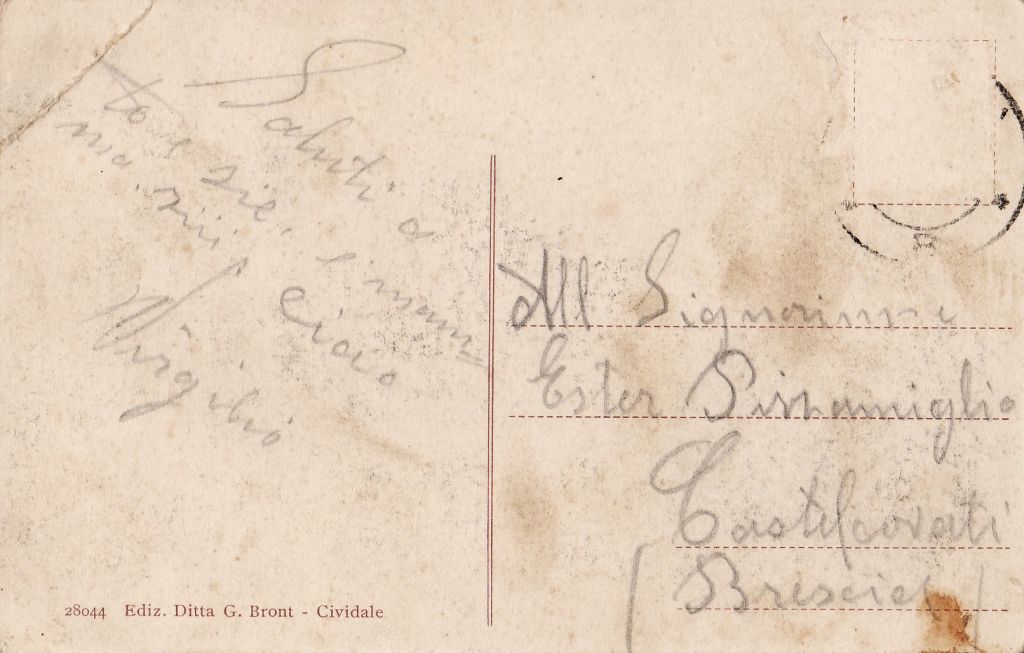 Saluti a
to e sie, e mam
ma. Ciao
Virgilio
All Signorina
Ester Pismamiglio
Castelcovati
(Brescia)
28044 Ediz. Ditta G. Bront - Cividale